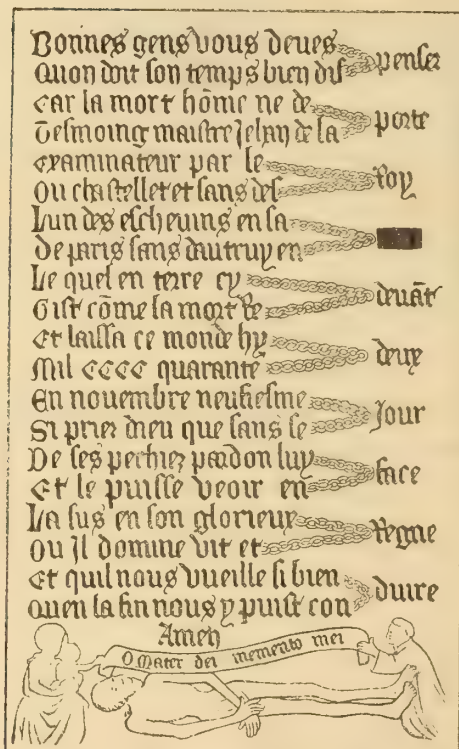 Bonnes gens vous deues penser
Quon doit son temps bien dis
Car la mort hōme ne de porte
Tesmoing maistre Jehan de la
Examinateur par le Roy
Ou chastellet et sans des
Lun des escheuins en sa
De paris sans dautruy en
Le quel en terre cy deuāt
Gist cōme la mort Re
Et laissa ce monde hy deux
Mil CCCC quarante
En nouembre neufiesme Jour
Si priez dieu que sans se
De ses pechiez pardon luy face
Et le puisse veoir en
La sus en son glorieux Regne
Ou Il domine vit et
Et quil nous vueille si bien duire
Quen la fin nous y puist con
Amen
O Mater dei memento mei